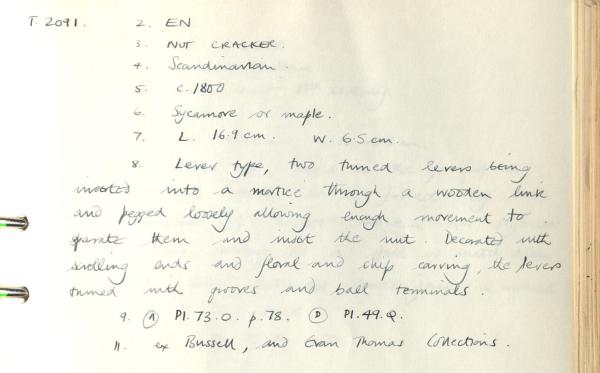 T. 2091. 2. EN
3. NUT CRACKER.
4. Scandinavian.
5. c. 1800
6. Sycamore or maple.
7. L. 16.9 cm. W. 6.5 cm.
8. Lever type, two turned levers being
inserted into a mortice through a wooden link
and pegged loosely allowing enough movement to
separate them and insert the nut. Decorated with
scrolling ends and floral and chip carving, the levers
turned with grooves and ball terminals.
9. (A) Pl. 73.O. p.78. (D) Pl. 49.Q.
11. ex Bussell, and Evan Thomas Collections.